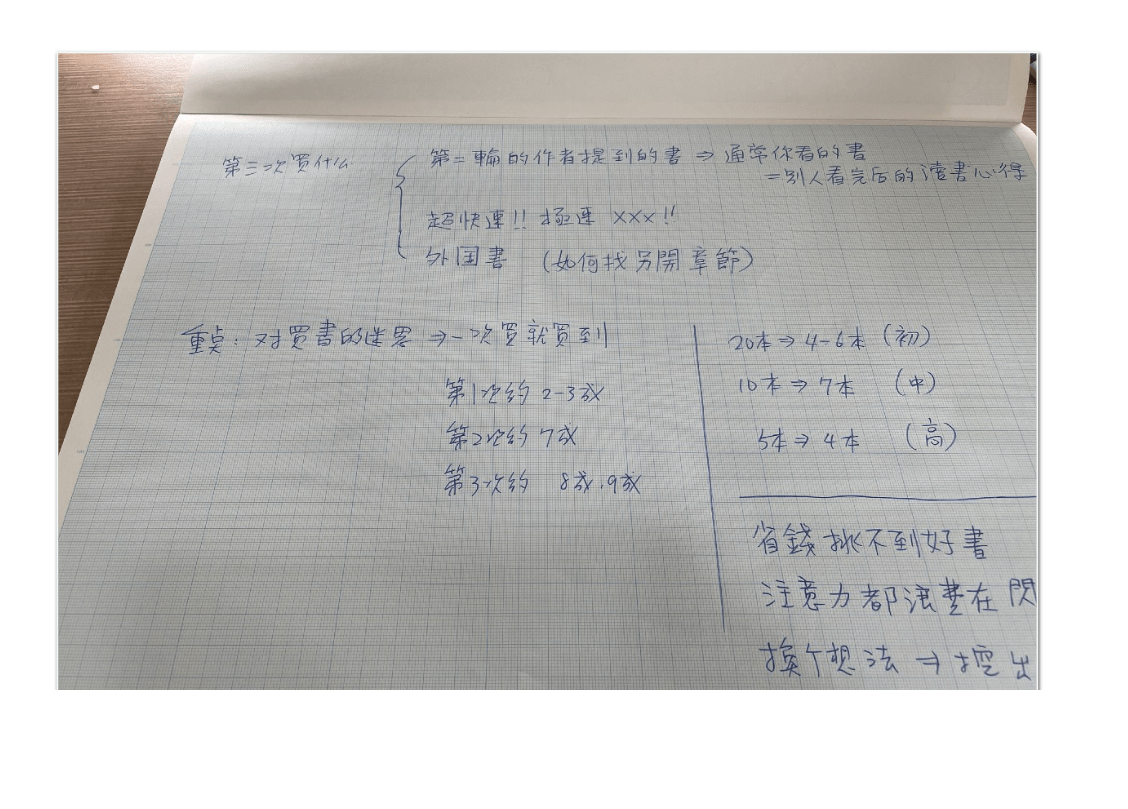 第三次買什么
第二輪的作者提到的書 ⇒ 通常你看的書
=別人看完后的讀書心得
超快速!! 極速 XXX!!
外国書 (如何找另開章節)
重点: 对買書的迷思 ⇒ 一次買就買到
第1次約 2-3成
第2次約 7成
第3次約 8成.9成
20本 ⇒ 4-6本 (初)
10本 ⇒ 7本 (中)
5本 ⇒ 4本 (高)
省錢挑不到好書
注意力都浪費在閃
換个想法 ⇒ 挖出